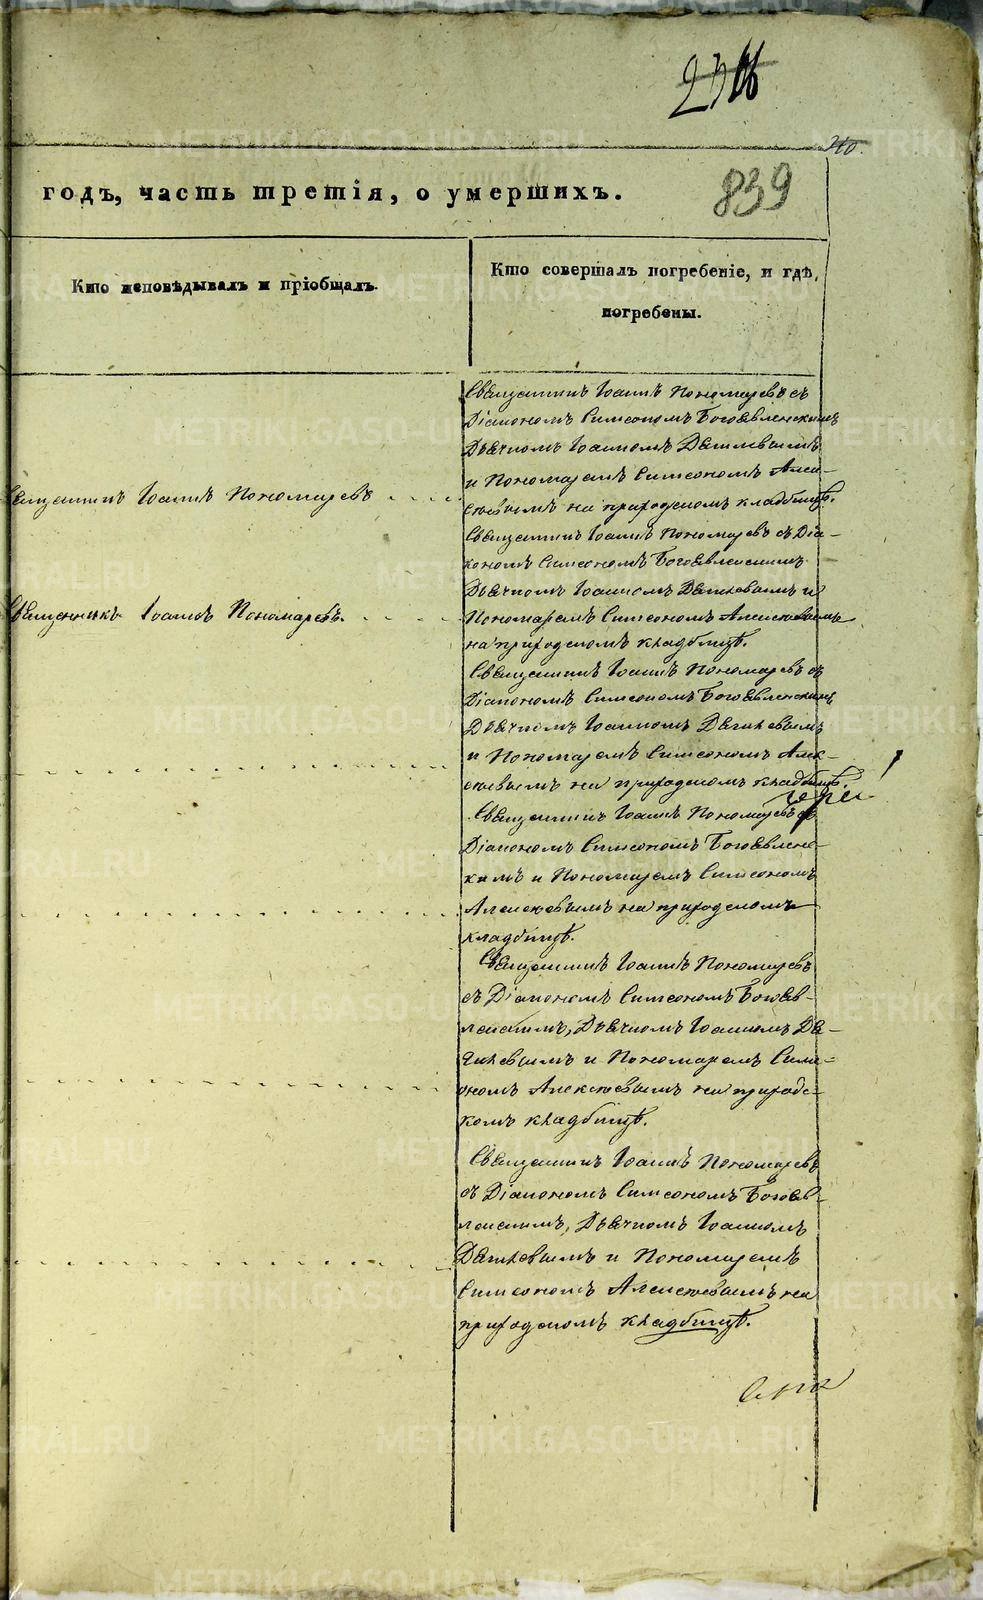 240.
годъ, часть третія, о умершихъ.
839
Кто исповѣдывалъ и пріобщалъ.
Кто совершалъ погребеніе, и гдѣ
погребены.
Священникъ Іоаннъ Пономаревъ съ
Діакономъ Симеономъ Богоявленскимъ
Дьячкомъ Іоанномъ
и Пономаремъ Симеономъ Алек-
сѣевымъ на приходскомъ кладбищѣ.
Священникъ Іоаннъ Пономаревъ
Священникъ Іоаннъ Пономаревъ съ Діа-
кономъ Симеономъ Богоявленскимъ
Дьячкомъ Іоанномъ и
Пономаремъ Симеономъ Алексѣевымъ
на приходскомъ кладбищѣ.
Священникъ Іоаннъ Пономаревъ.
Священникъ Іоаннъ Пономаревъ съ
Діакономъ Симеономъ Богоявленскимъ
Дьячкомъ Іоанномъ
и Пономаремъ Симеономъ Алек-
сѣевымъ на приходскомъ кладбищѣ.
Священникъ Іоаннъ Пономаревъ съ
Діакономъ Симеономъ Богоявленс-
кимъ и Пономаремъ Симеономъ
Алексѣевымъ на приходскомъ
кладбищѣ.
Священникъ Іоаннъ Пономаревъ
съ Діакономъ Симеономъ Богояв-
ленскимъ, Дьячкомъ Іоанномъ
и Пономаремъ Симе-
ономъ Алексѣевымъ на приходс-
комъ кладбищѣ.
Священникъ Іоаннъ Пономаревъ
съ Діакономъ Симеономъ Богояв-
ленскимъ, Дьячкомъ Іоанномъ
и Пономаремъ
Симеономъ Алексѣевымъ на
приходскомъ кладбищѣ.
METRIKI.GASO-URAL.RU